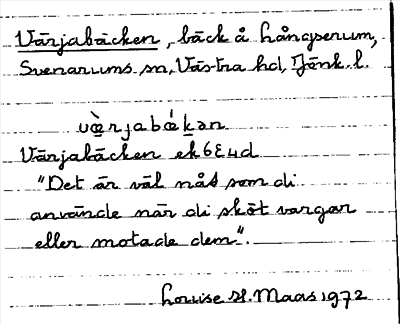 Värjabäcken, bäck å Långserum,
Svenarums sn, Västra hd, Jönk. l.
vǜ̀rjabǽkən
Värjabäcken ek 6E4d
"Det är väl nåt som di
använde när di sköt vargar
eller motade dem".
Louise H. Maas 1972